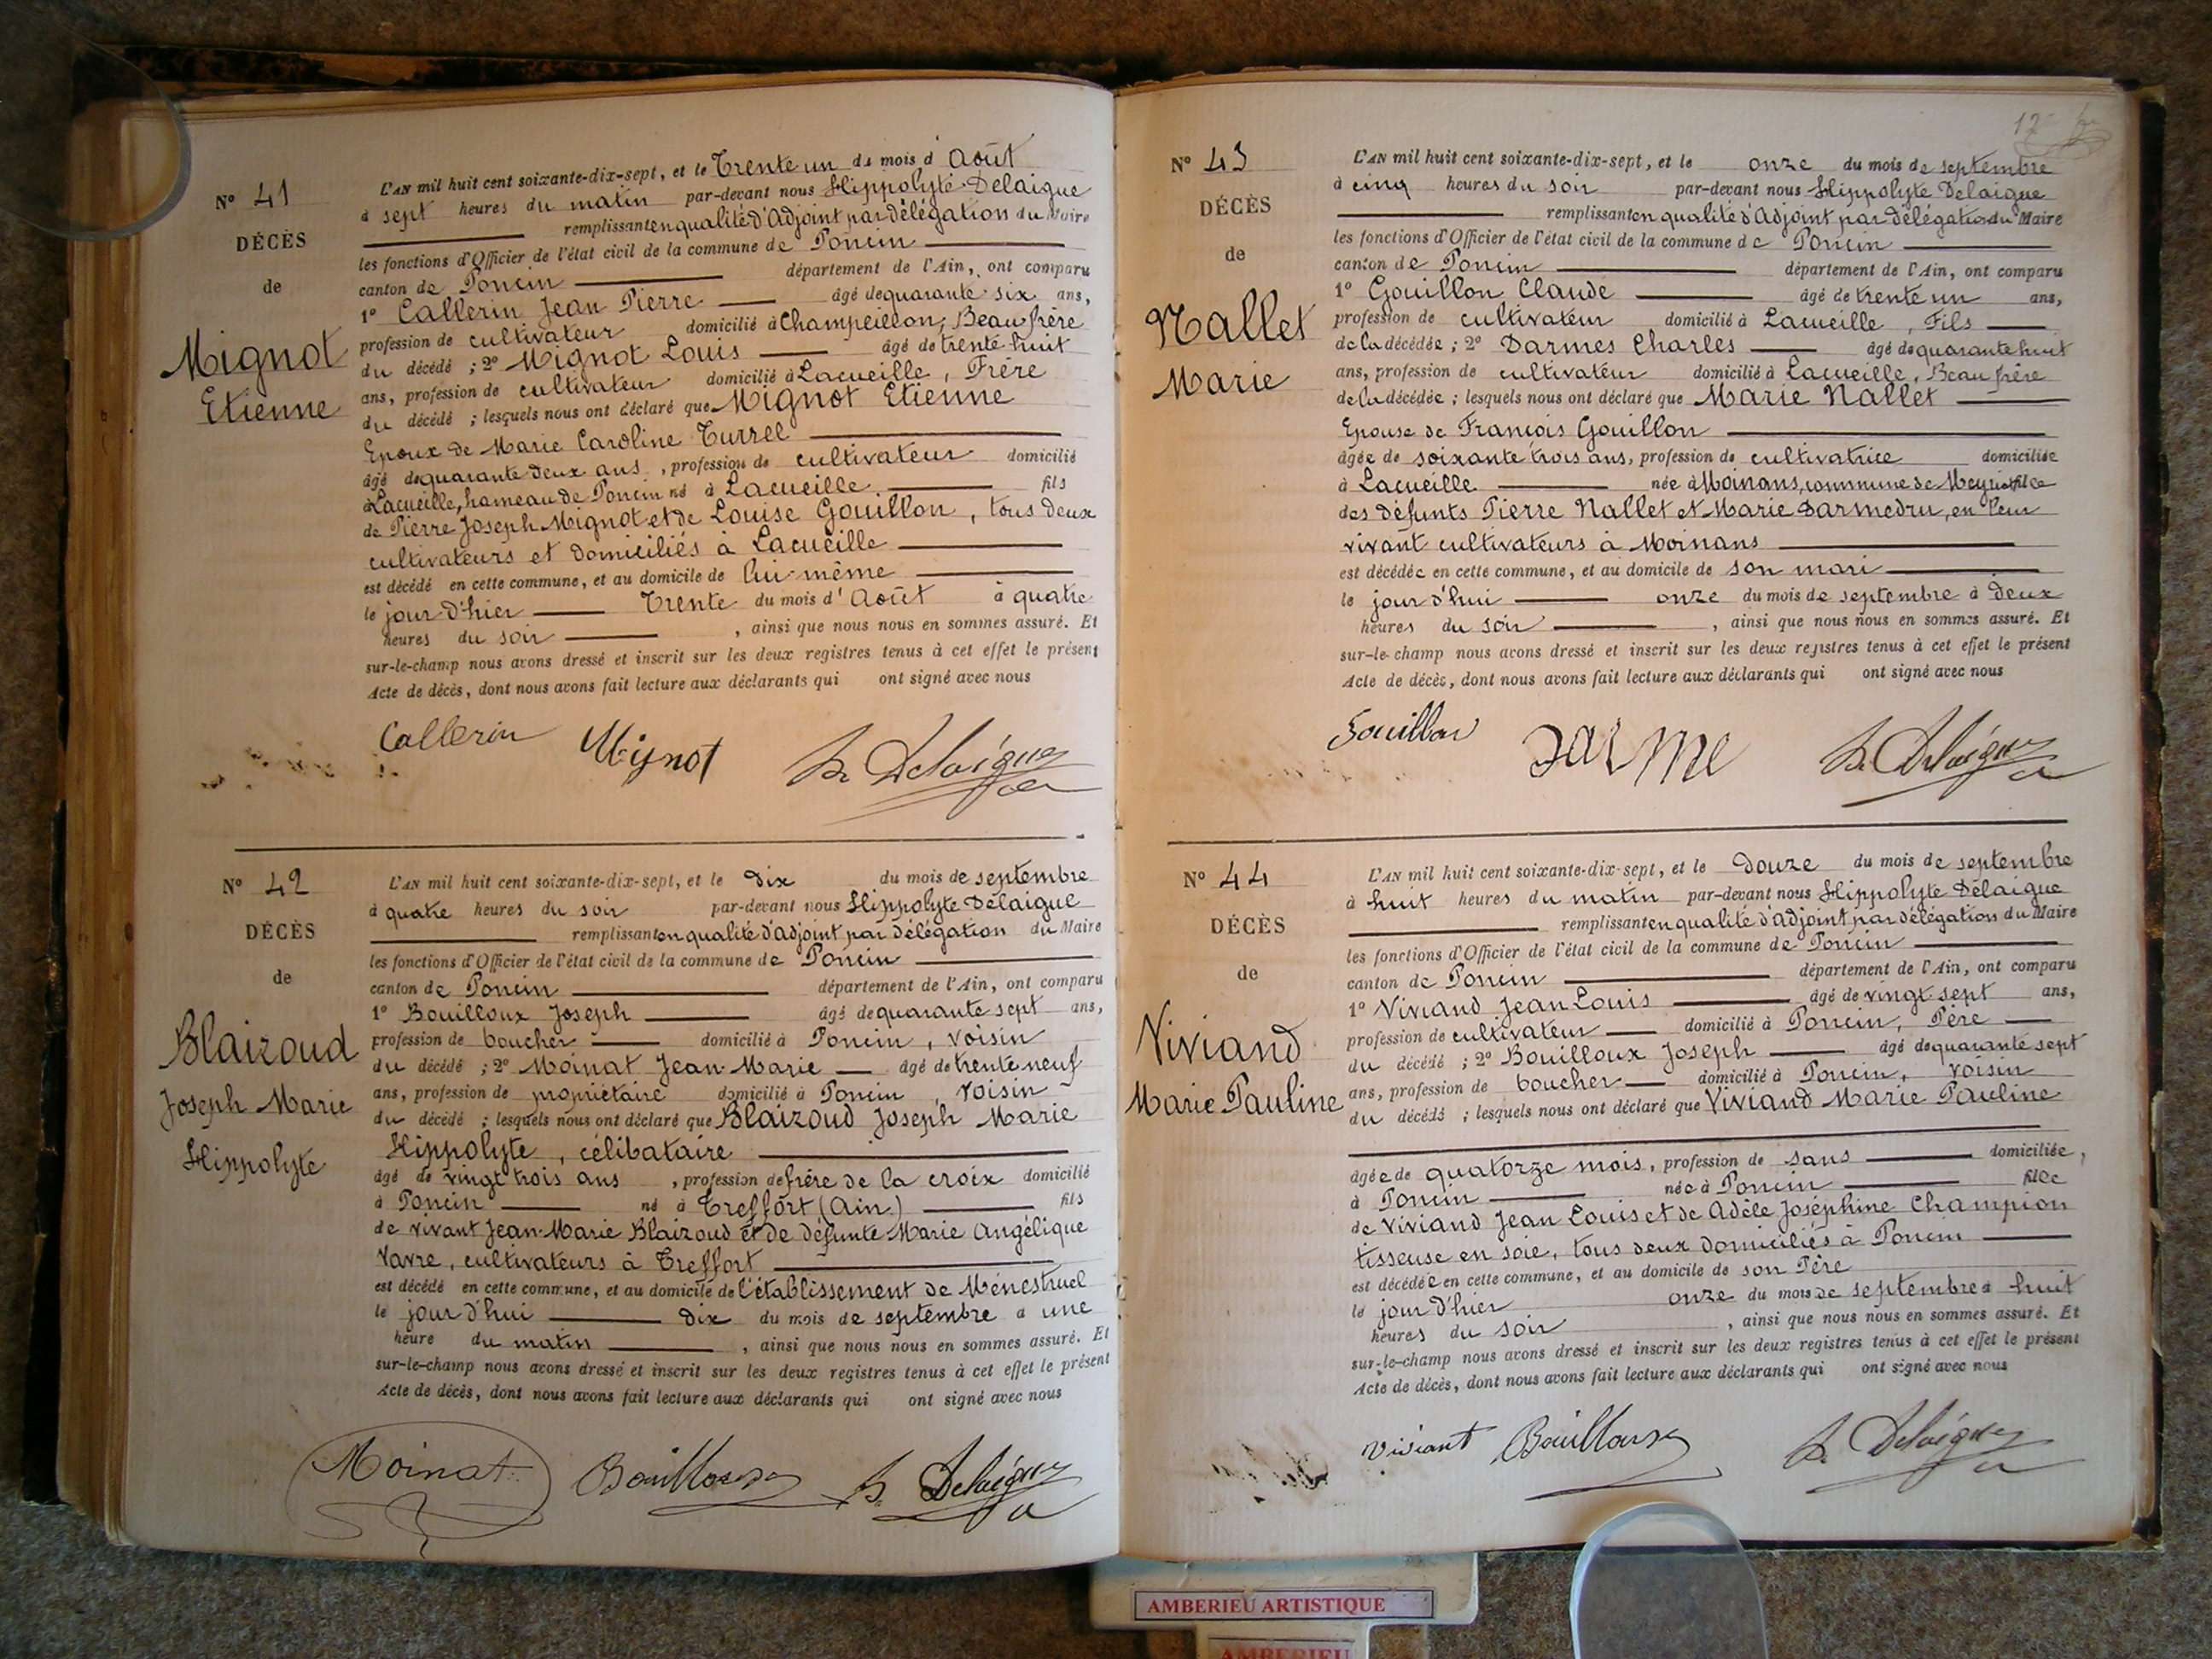 N° 41
DÉCÈS
de
Mignot
Etienne
L'AN mil huit cent soixante-dix-sept, et le Trente un du mois d'Août
à sept heures du matin par-devant nous Hippolyte Delaigue
remplissant en qualité d'Adjoint par délégation du Maire
les fonctions d'Officier de l'état civil de la commune de Poncin
canton de Poncin département de l'Ain, ont comparu
1° Callerin Jean Pierre âgé de quarante six ans,
profession de cultivateur domicilié à Champeillon, Beau frère
du décédé ; 2° Mignot Louis âgé de trente huit
ans, profession de cultivateur domicilié à Lacueille, Frère
du décédé ; lesquels nous ont déclaré que Mignot Etienne
Epoux de Marie Caroline Turrel
âgé de quarante deux ans, profession de cultivateur domicilié
à Lacueille, hameau de Poncin né à Lacueille fils
de Pierre Joseph Mignot et de Louise Gouillon, tous deux
cultivateurs et domiciliés à Lacueille
est décédé en cette commune, et au domicile de lui-même
le jour d'hier Trente du mois d'Août à quatre
heures du soir, ainsi que nous nous en sommes assuré. Et
sur-le-champ nous avons dressé et inscrit sur les deux registres tenus à cet effet le présent
Acte de décès, dont nous avons fait lecture aux déclarants qui ont signé avec nous
Callerin Mignot h. Delaigue
N° 42
DÉCÈS
de
Blaizoud
Joseph Marie
Hippolyte
L'AN mil huit cent soixante-dix-sept, et le dix du mois de septembre
à quatre heures du soir par-devant nous Hippolyte Delaigue
remplissant en qualité d'adjoint par délégation du Maire
les fonctions d'Officier de l'état civil de la commune de Poncin
canton de Poncin département de l'Ain, ont comparu
1° Bouilloux Joseph âgé de quarante sept ans,
profession de boucher domicilié à Poncin, voisin
du décédé ; 2° Moinat Jean-Marie âgé de trente neuf
ans, profession de propriétaire domicilié à Poncin, voisin
du décédé ; lesquels nous ont déclaré que Blaizoud Joseph Marie
Hippolyte, célibataire
âgé de vingt trois ans, profession de frère de la croix domicilié
à Poncin né à Treffort (Ain) fils
de vivant Jean-Marie Blaizoud et de défunte Marie Angélique
Vavre, cultivateurs à Treffort
est décédé en cette commune, et au domicile de l'établissement de Ménestruel
le jour d'hui dix du mois de septembre à une
heure du matin, ainsi que nous nous en sommes assuré. Et
sur-le-champ nous avons dressé et inscrit sur les deux registres tenus à cet effet le présent
Acte de décès, dont nous avons fait lecture aux déclarants qui ont signé avec nous
Moinat Bouilloux h. Delaigue
N° 43
DÉCÈS
de
Nallet
Marie
L'AN mil huit cent soixante-dix-sept, et le onze du mois de septembre
à cinq heures du soir par-devant nous Hippolyte Delaigue
remplissant en qualité d'adjoint par délégation du Maire
les fonctions d'Officier de l'état civil de la commune de Poncin
canton de Poncin département de l'Ain, ont comparu
1° Gouillon Claude âgé de trente un ans,
profession de cultivateur domicilié à Lacueille, Fils
de la décédée ; 2° Darmes Charles âgé de quarante huit
ans, profession de cultivateur domicilié à Lacueille, Beau frère
de la décédée ; lesquels nous ont déclaré que Marie Nallet
Epouse de François Gouillon
âgée de soixante trois ans, profession de cultivatrice domiciliée
à Lacueille née à Moinans, commune de Meyriat fille
des défunts Pierre Nallet et Marie Darmedru, en leur
vivant cultivateurs à Moinans
est décédée en cette commune, et au domicile de son mari
le jour d'hui onze du mois de septembre à deux
heures du soir, ainsi que nous nous en sommes assuré. Et
sur-le-champ nous avons dressé et inscrit sur les deux registres tenus à cet effet le présent
Acte de décès, dont nous avons fait lecture aux déclarants qui ont signé avec nous
Gouillon Darme h. Delaigue
N° 44
DÉCÈS
de
Viviand
Marie Pauline
L'AN mil huit cent soixante-dix-sept, et le douze du mois de septembre
à huit heures du matin par-devant nous Hippolyte Delaigue
remplissant en qualité d'adjoint par délégation du Maire
les fonctions d'Officier de l'état civil de la commune de Poncin
canton de Poncin département de l'Ain, ont comparu
1° Viviand Jean Louis âgé de vingt sept ans,
profession de cultivateur domicilié à Poncin, Père
du décédé ; 2° Bouilloux Joseph âgé de quarante sept
ans, profession de boucher domicilié à Poncin, voisin
du décédé ; lesquels nous ont déclaré que Viviand Marie Pauline
âgée de quatorze mois, profession de sans domiciliée,
à Poncin née à Poncin fille
de Viviand Jean Louis et de Adèle Joséphine Champion
tisseuse en soie, tous deux domiciliés à Poncin
est décédée en cette commune, et au domicile de son Père
le jour d'hier onze du mois de septembre à huit
heures du soir, ainsi que nous nous en sommes assuré. Et
sur-le-champ nous avons dressé et inscrit sur les deux registres tenus à cet effet le présent
Acte de décès, dont nous avons fait lecture aux déclarants qui ont signé avec nous
Viviant Bouilloux h. Delaigue
AMBERIEU ARTISTIQUE
AMBERIEU